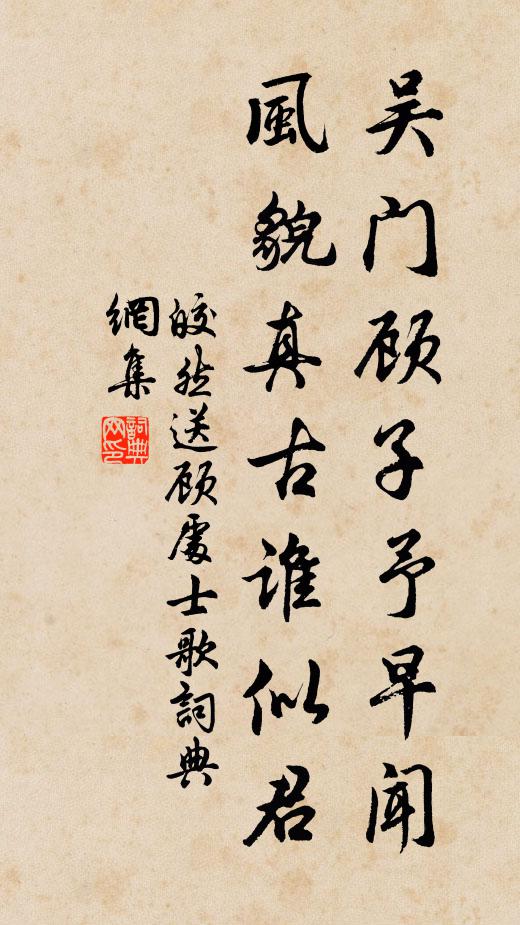 吴门顾子予早闻
風貌真古谁似君
皎然送顾處士歌詞典
網集
詞典
网印